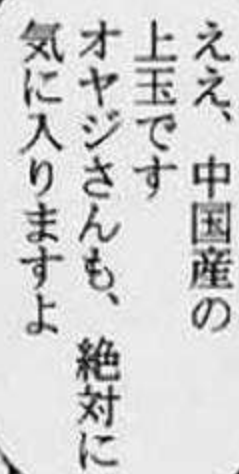 ええ、中国産の
上玉です
オヤジさんも、絶対に
気に入りますよ